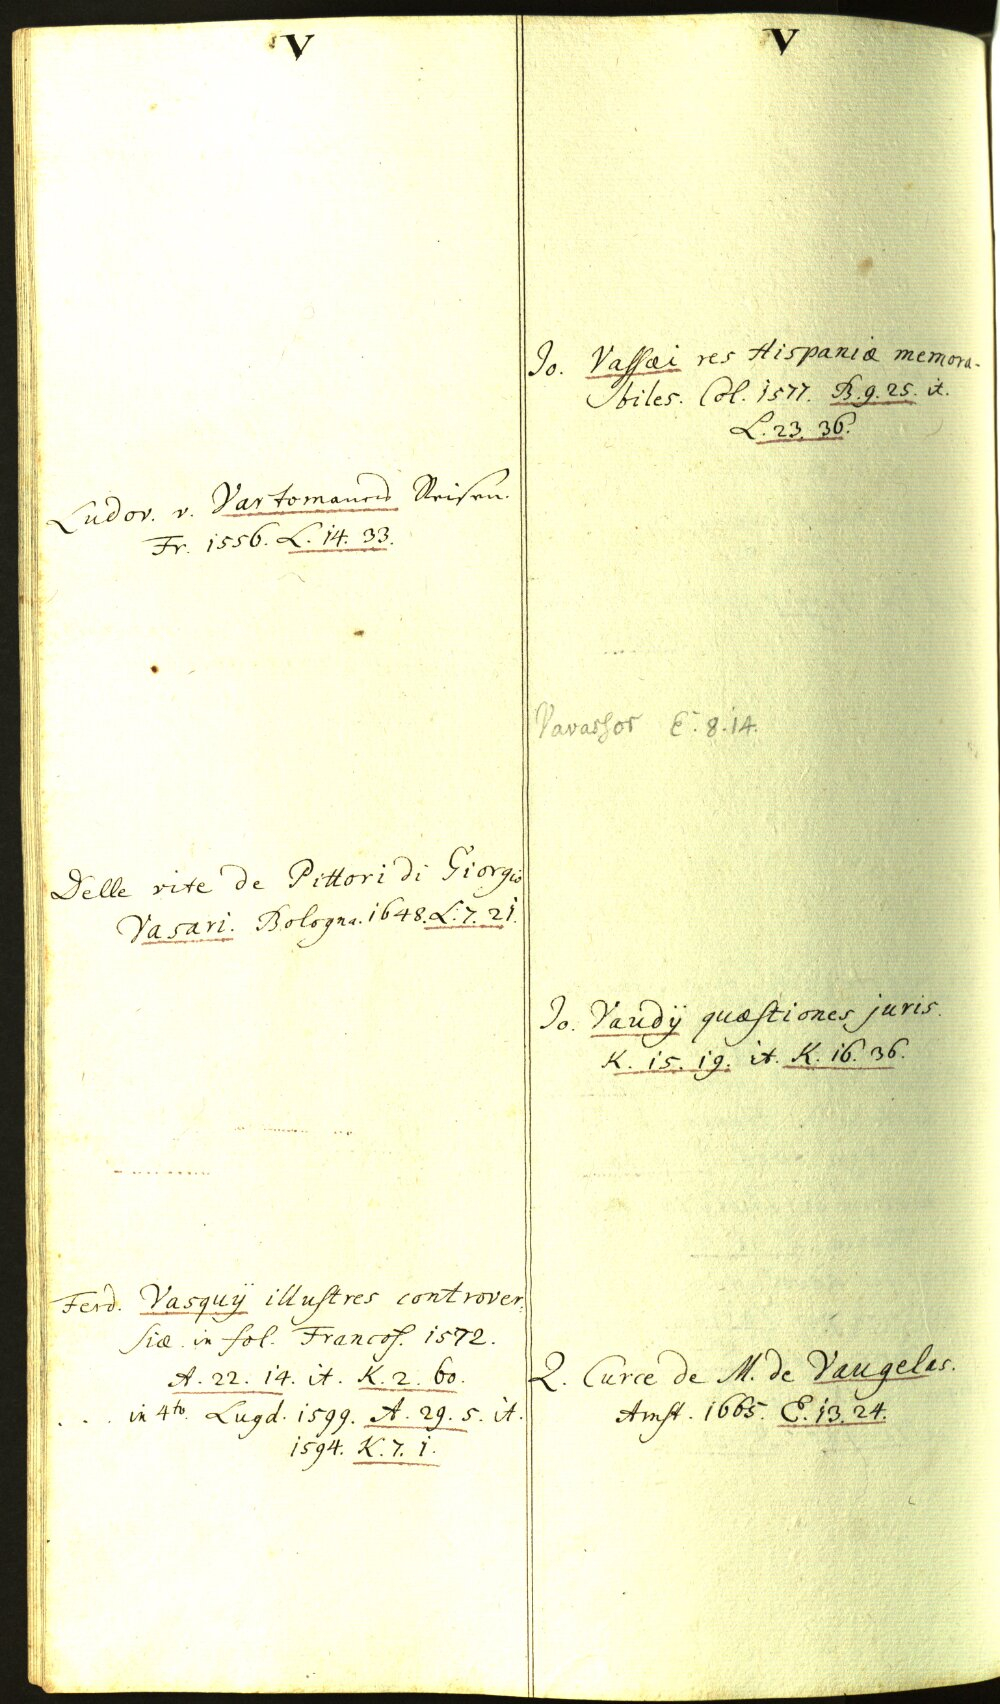 V
Ludov. v. Vartomanns Reisen.
Fr. 1556. L. 14. 33.
Delle vite de Pittori di Giorgio
Vasari. Bologna. 1648. L. 7. 21.
Ferd. Vasquij illuſtres controver-
ſiæ in fol. Francof. 1572.
A. 22. 14. it. K. 2. 60.
. . . in 4to Lugd. 1599. A. 29. 5. it.
1594. K. 7. 1.
V
Jo. Vaſſæi res Hispaniæ memora-
biles. Col. 1577. B. 9. 25. it.
L. 23. 36.
Vavassor E. 8. 14.
Jo. Vaudij quæſtiones juris.
K. 15. 19. it. K. 16. 36.
Q. Curce de M. de Vaugelas.
Amſt. 1665. E. 13. 24.